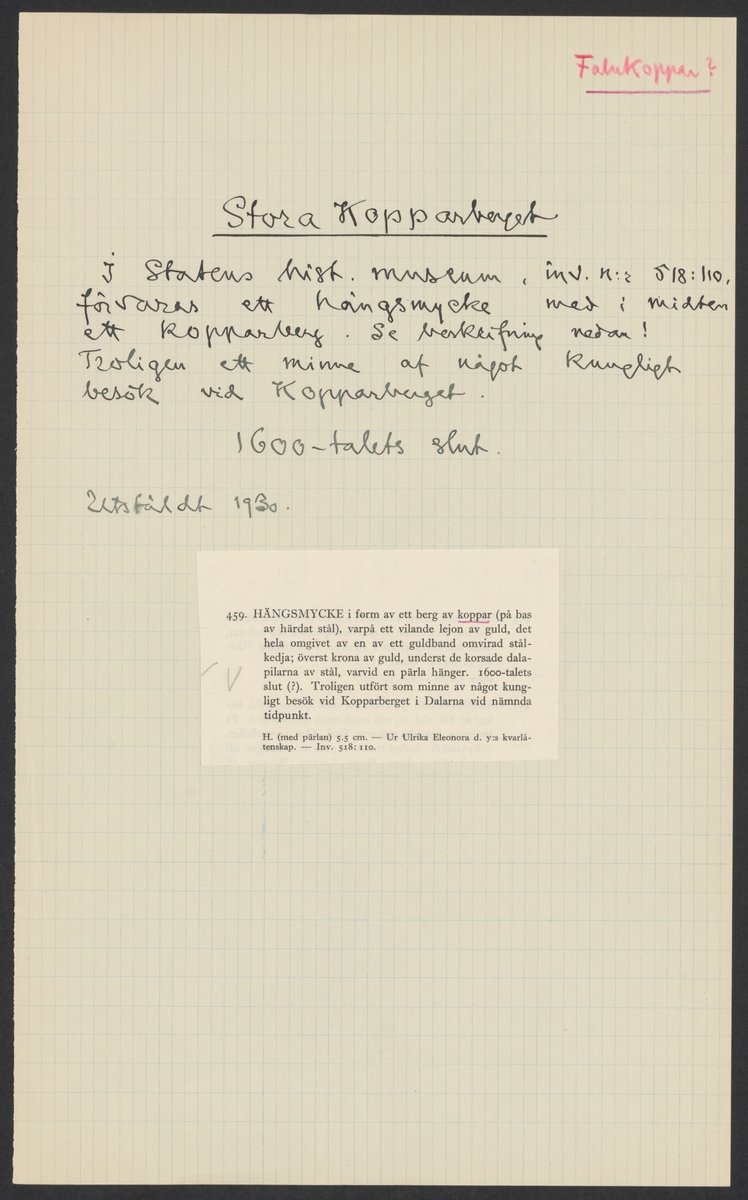 Falukoppar?
Stora Kopparberget
I Statens hist. museum, inv. n:r 518:110,
förvaras ett hängsmycke med i midten
ett kopparberg. Se beskrifning nedan!
Troligen ett minne af något kungligt
besök vid Kopparberget.
1600-talets slut.
Utstäldt 1930.
459. HÄNGSMYCKE i form av ett berg av koppar (på bas
av härdat stål), varpå ett vilande lejon av guld, det
hela omgivet av en av ett guldband omvirad stål-
kedja; överst krona av guld, underst de korsade dala-
pilarna av stål, varvid en pärla hänger. 1600-talets
slut (?). Troligen utfört som minne av något kung-
ligt besök vid Kopparberget i Dalarna vid nämnda
tidpunkt.
H. (med pärlan) 5.5 cm. — Ur Ulrika Eleonora d. y:s kvarlå-
tenskap. — Inv. 518: 110.